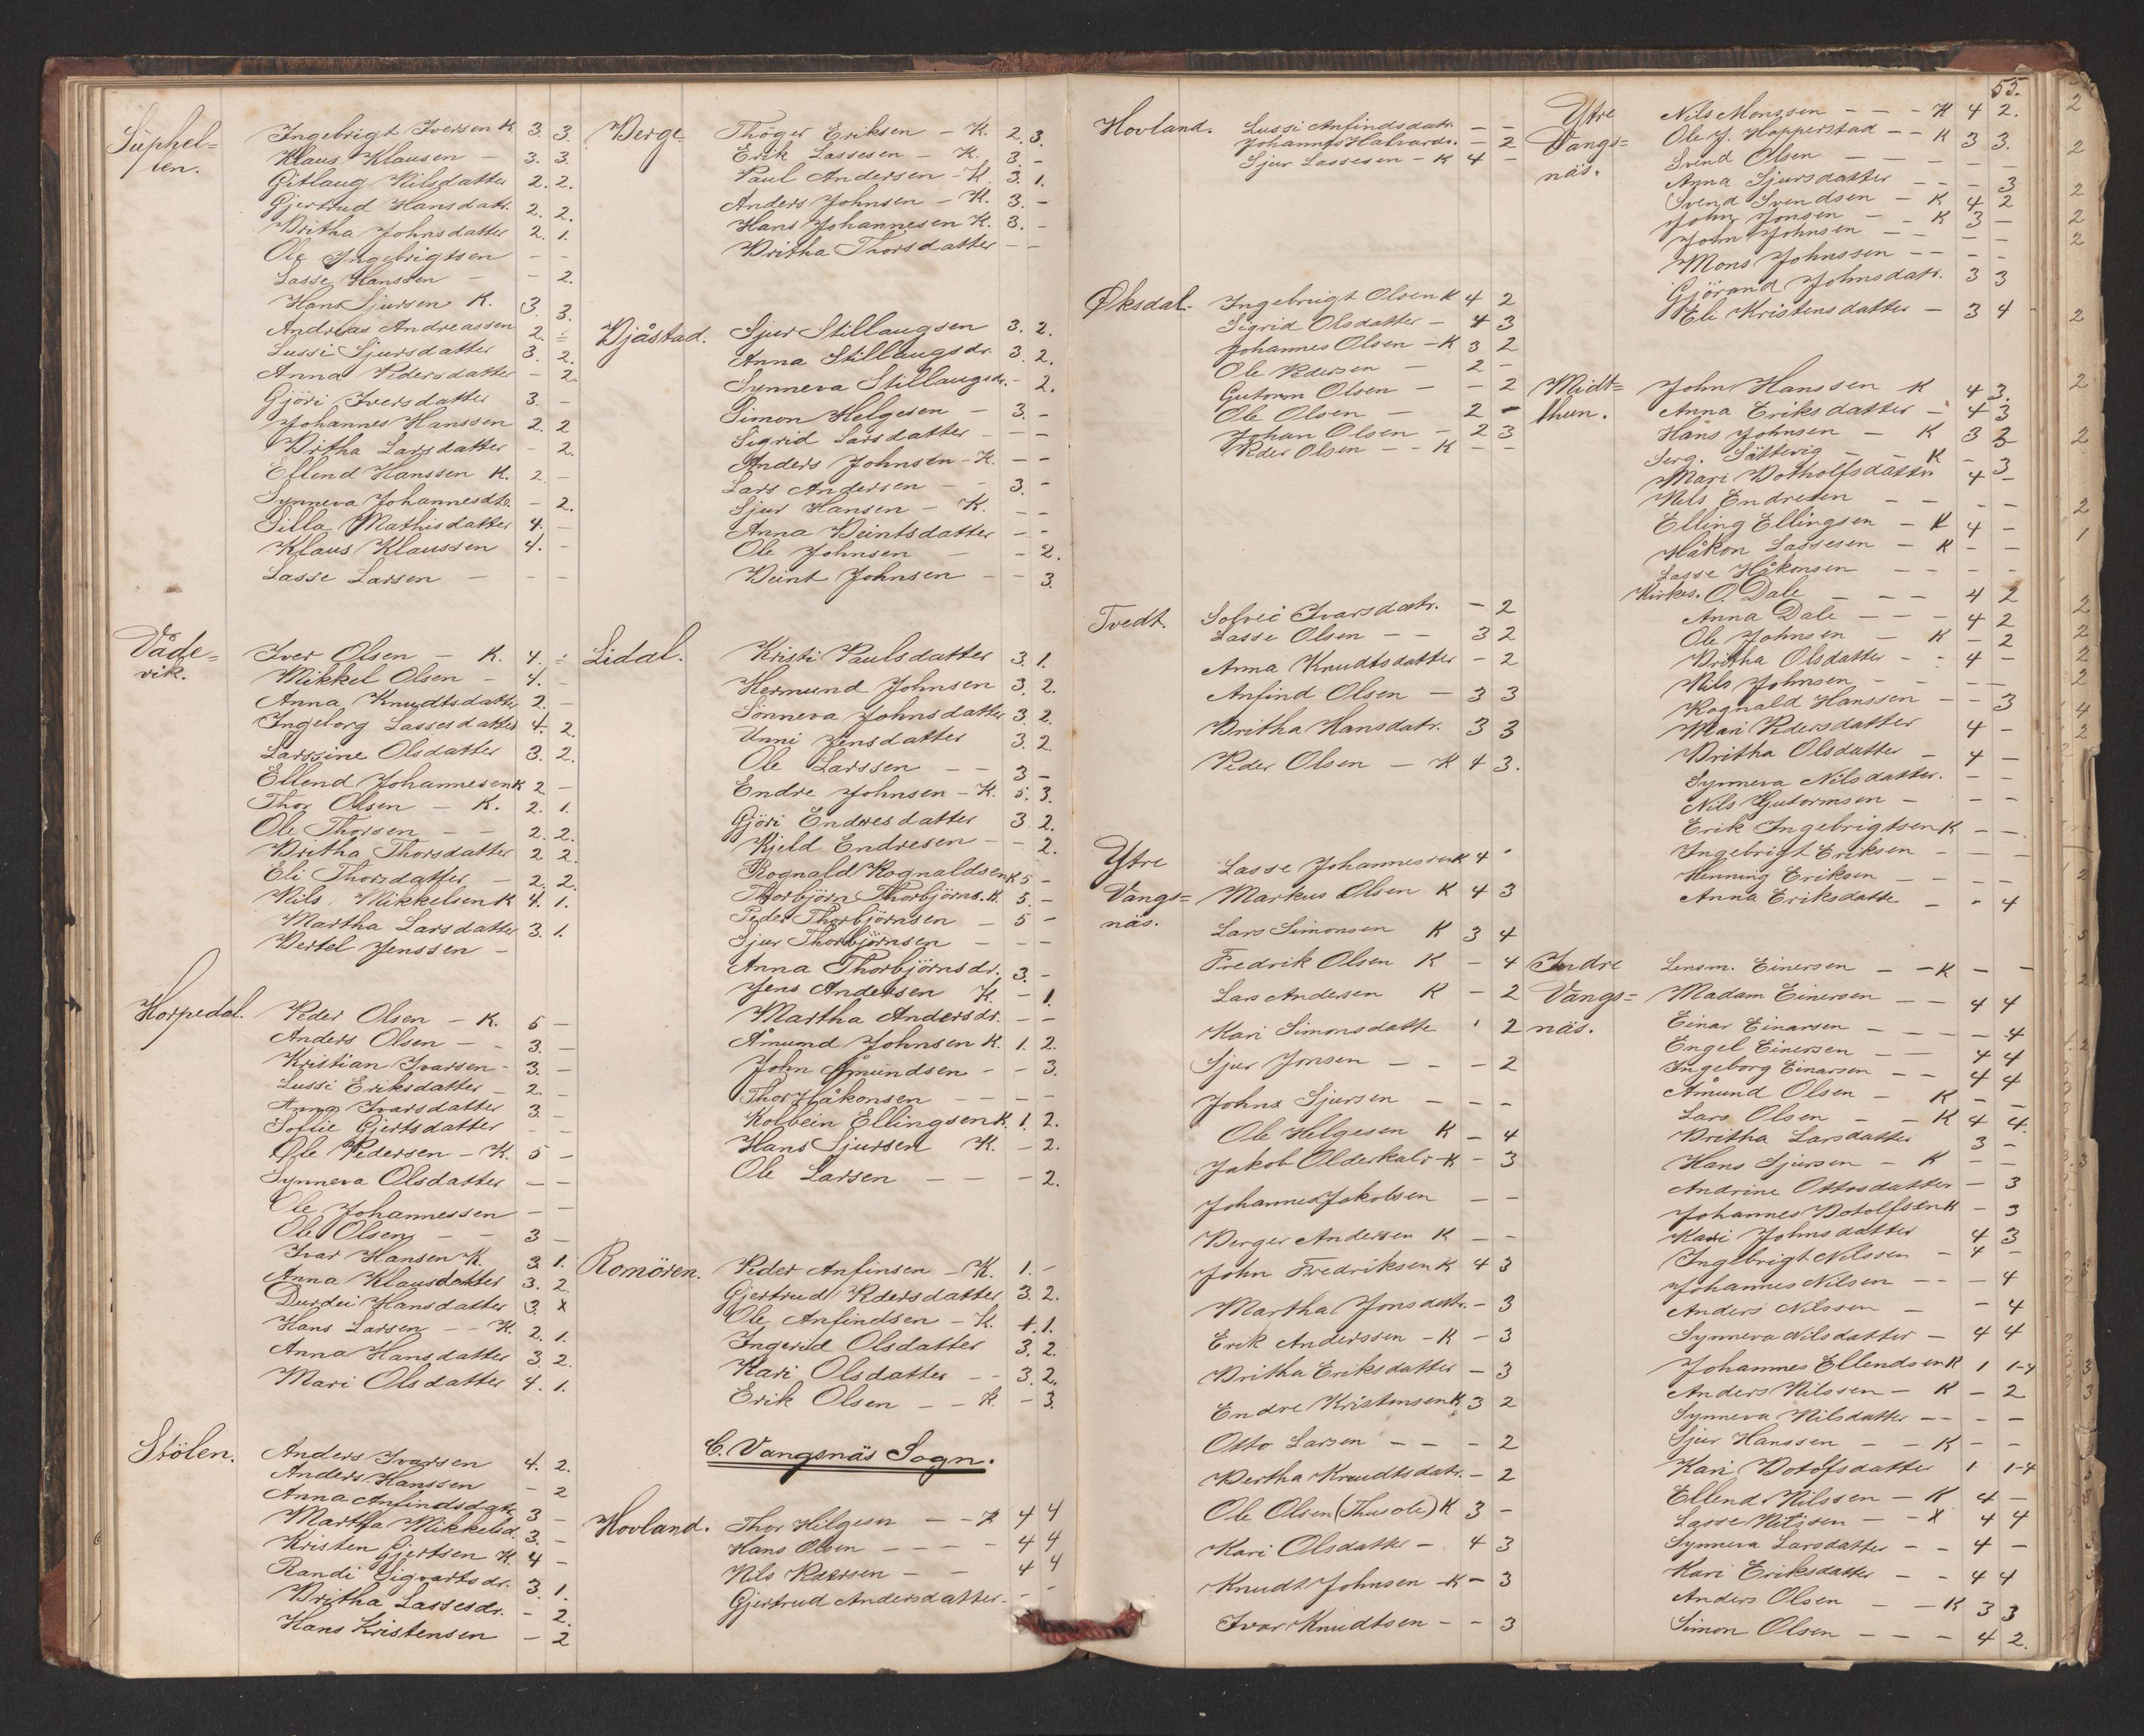 55.
Suphel=
len.
Ingebrigt Iversen K. 3. 3.
Klaus Klausen - 3. 3.
Gitlaug Nilsdatter 2. 2.
Gjertrud Hansdatr. 2. 2.
Britha Johnsdatter 2. 1.
Ole Ingebrigtsen - -
Lasse Hanssen - - 2.
Hans Sjursen K. 3. 3.
Andreas Andreassen 2. -
Lussi Sjursdatter 3. 2.
Anna Pedersdatter - 2.
Gjöri Iversdatter 3. -
Johannes Hanssen 2. 2
Britha Larsdatter - 2.
Ellend Hanssen K. 2. -
Synneva Johannesdtr. - 2.
Silla Mathisdatter 4. -
Klaus Klaussen 4. -
Lasse Larsen - - -
Våde=
vik.
Iver Olsen - K. 4. -
Mikkel Olsen - 4. -
Anna Knudtsdatter 2. -
Ingeborg Lassesdatter 4. 2.
Larssine Olsdatter 3. 2.
Ellend Johannesen K 2 -
Thor Olsen - K. 2. 1.
Ole Thorsen - - 2. 2.
Britha Thorsdatter 2. 2.
Eli Thorsdatter - 2. 2.
Nils Mikkelsen K 4. 1.
Martha Larsdatter 3. 1.
Bertel Jenssen -
Horpedal.
Peder Olsen - K. 5 -
Anders Olsen - - 3. -
Kristian Ivarsen - 3. -
Lussi Eriksdatter - 2. -
Anna Ivarsdatter 3. -
Soflie Gjertsdatter - -
Ole Pedersen - K. 5 -
Synneva Olsdatter - -
Ole Johannessen - -
Ole Olsen - - 3 -
Ivar Hansen K. 3. 1.
Anna Klausdatter 3. 2.
Durdei Hansdatter 3. x
Hans Larsen - - K. 2. 1.
Anna Hansdatter 3. 2.
Mari Olsdatter 4. 1.
Stölen.
Anders Ivarsen 4. 2.
Anders Hanssen - 2
Anna Anfindsdatr. 3 -
Martha Mikkelsd. 3. -
Kristen Gjertsen K. 4 -
Randi Sigvartsdr. 3. 1.
Britha Lassesdr. - 2.
Hans Kristensen - 2
Berge
Thöger Eriksen - K. 2. 3.
Erik Lassesen - K. 3. -
Paul Andersen - K. 3. 1.
Anders Johnsen - K. 3. -
Hans Johannesen K. 3. -
Britha Thorsdatter - -
Bjåstad.
Sjur Stillaugsen 3. 2.
Anna Stillaugsdr. 3. 2.
Synneva Stillaugsdr. - 2.
Simon Helgesen - 3. -
Sigrid Larsdatter - - -
Anders Johnsen - K. - -
Lars Andersen - - 3. -
Sjur Hansen - K. - -
Anna Beintsdatter - -
Ole Johnsen - - 2.
Beint Johnsen - - 3.
Lidal.
Kristi Paulsdatter 3. 1.
Hermund Johnsen 3. 2.
Sönneva Johnsdatter 3. 2.
Unni Jensdatter 3. 2.
Ole Larssen - - 3 -
Endre Johnsen - K. 5. 3.
Gjöri Endresdatter 3 2.
Kjeld Endresen - - 2.
Rognald Rognaldsen K 5 -
Thorbjörn Thorbjörns. K. 5. -
Peder Thorbjörnsen - 5 -
Sjur Thorbjörnsen - - -
Anna Thorbjörnsdr. 3. -
Jens Andersen K. - 1.
Martha Andersdr. - -
Åmund Johnsen K. 1. 2.
John Åmundsen - - 3.
Thor Håkonsen - - - -
Kolbein Ellingsen K. 1. 2.
Hans Sjursen K. - 2.
Ole Larsen - - - 2.
Romören.
Peder Anfinsen - K. 1. -
Gjertrud Pedersdatter 3. 2.
Ole Anfindsen - K. 4. 1.
Ingerid Olsdatter 3. 2.
Kari Olsdatter - - 3. 2.
Erik Olsen - - K. - 3.
C. Vangsnäs Sogn.
Hovland.
Thor Helgesen - - K 4 4
Hans Olsen - - - - 4 4
Nils Pedersen - - 4 4
Gjertrud Andersdatter - - -
Hovland.
Lussi Anfindsdatr. - -
Johannes Halvards. - 2
Sjur Lassesen - K 4 -
Øksdal.
Ingebrigt Olsen K 4 2
Sigrid Olsdatter - 4 3
Johannes Olsen - K 3 2
Ole Pedersen - 2 -
Gutorm Olsen - - 2
Ole Olsen - 2 -
Johan Olsen - 2 3
Peder Olsen - - K - -
Tvedt.
Solvei Ivarsdatr. - 2
Lasse Olsen - - 3 2
Anna Knudtsdatter - 2
Anfind Olsen - 3 3
Britha Hansdatr. 3 3
Peder Olsen - K 4 3.
Ytre
Vangs=
näs.
Lasse Johannessen K 4 -
Markus Olsen K 4 3
Lars Simonsen K 3 4
Fredrik Olsen K - 4
Lars Andersen K - 2
Kari Simonsdatter - 2
Sjur Jonsen - - - 2
Johns Sjursen - - -
Ole Helgesen K - 4
Jakob Olderkalv - K - 3
Johannes Jakobsen - -
Berger Andersen K - -
John Fredriksen K 4 3
Martha Jonsdatr. - 3
Erik Anderssen - K - 3
Britha Eriksdatter - 3
Endre Kristensen K 3 2
Otto Larsen - - - 2
Bertha Knudtsdatr. - 2
Ole Olsen (Thusole) K 3 -
Kari Olsdatter - 4 3
Knudt Johnsen - K - 3
Ivar Knudtsen - - 3
Ytre
Vangs=
näs.
Nils Monssen - - - K 4 2.
Ole J. Hopperstad - - K 3 3.
Svend Olsen - - - - -
Anna Sjursdatter - - - 3
Svend Svendsen - K 4 2
John Jonsen - - K 3 -
John Johnsen - - - -
Mons Johnssen - - - -
Gjörand Johnsdatr. 3 3
Eli Kristensdatter - 3 4
Midt=
thun.
John Hanssen K 4 3.
Anna Eriksdatter - 4 3
Hans Johnsen - K 3 3
Serg. Sättevig - - K - 3
Mari Botholfsdatter 4 -
Nils Endresen - - - -
Elling Ellingsen - K 4 -
Håkon Lassesen - K - -
Lasse Håkonsen - - - -
Kirkes. O. Dale - - - 4 2
Anna Dale - - - 4 2
Ole Johnsen - K - 2
Britha Olsdatter - - 4 -
Nils Johnsen - - - -
Rognald Hanssen - - 3
Mari Pedersdatter 4 -
Britha Olsdatter - 4 -
Synneva Nilsdatter. - -
Nils Gutormsen - - -
Erik Ingebrigtsen K - -
Ingebrigt Eriksen - - -
Henning Eriksen - - - -
Anna Eriksdatter - - 4
Indre
Vangs=
näs.
Lensm. Einersen - - K - -
Madam Einersen - - 4 4
Einar Einarsen - - - - 4
Engel Einersen - - 4 4
Ingeborg Einarsen - - 4 4
Åmund Olsen - K - -
Lars Olsen - - K 4 4.
Britha Larsdatter 3 -
Hans Sjursen - K - -
Andrine Ottosdatter - 3
Johannes Botolfsen K - 3
Kari Johnsdatter 4 3
Ingebrigt Nilssen - 4 -
Johannes Nilsen - - - 4
Anders Nilssen - - 4
Synneva Nilsdatter - 4 4
Johannes Ellendsen K 1 1-4
Anders Nilssen - K - 2
Synneva Nilsdatter - - - -
Sjur Hanssen - - K - -
Kari Botolfsdatter 1 1-4
Ellend Nilssen - K 4 -
Lasse Nilssen - - X 4 4
Synneva Larsdatter - - 4 -
Kari Eriksdatter - - 4 4
Anders Olsen - - K 3 3
Simon Olsen - - - 4 2.